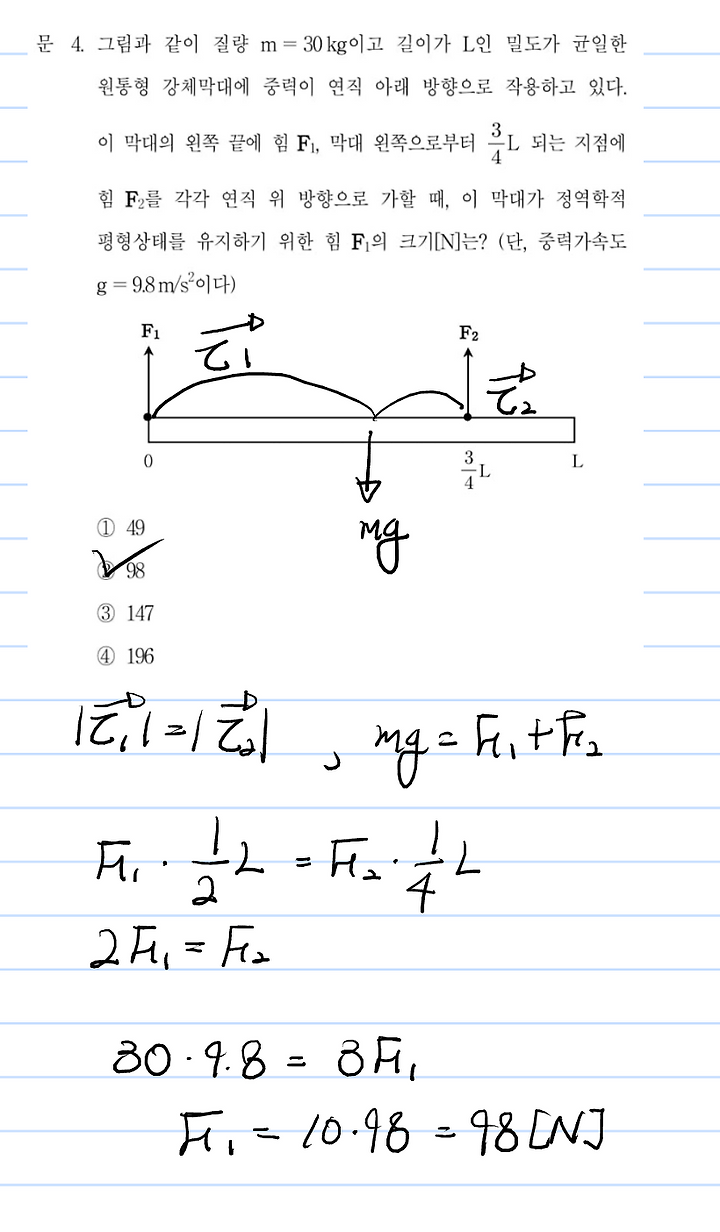 문 4. 그림과 같이 질량 m = 30 kg이고 길이가 L인 밀도가 균일한
원통형 강체막대에 중력이 연직 아래 방향으로 작용하고 있다.
이 막대의 왼쪽 끝에 힘 F₁, 막대 왼쪽으로부터 3/4 L 되는 지점에
힘 F₂를 각각 연직 위 방향으로 가할 때, 이 막대가 정역학적
평형상태를 유지하기 위한 힘 F₁의 크기[N]는? (단, 중력가속도
g = 9.8 m/s²이다)
F₁ τ⃗₁ F₂ τ⃗₂
0 3/4 L L
mg
① 49
② 98
③ 147
④ 196
|τ⃗₁| = |τ⃗₂| , mg = F₁ + F₂
F₁ · 1/2 L = F₂ · 1/4 L
2F₁ = F₂
30 · 9.8 = 3F₁
F₁ = 10·98 = 98 [N]